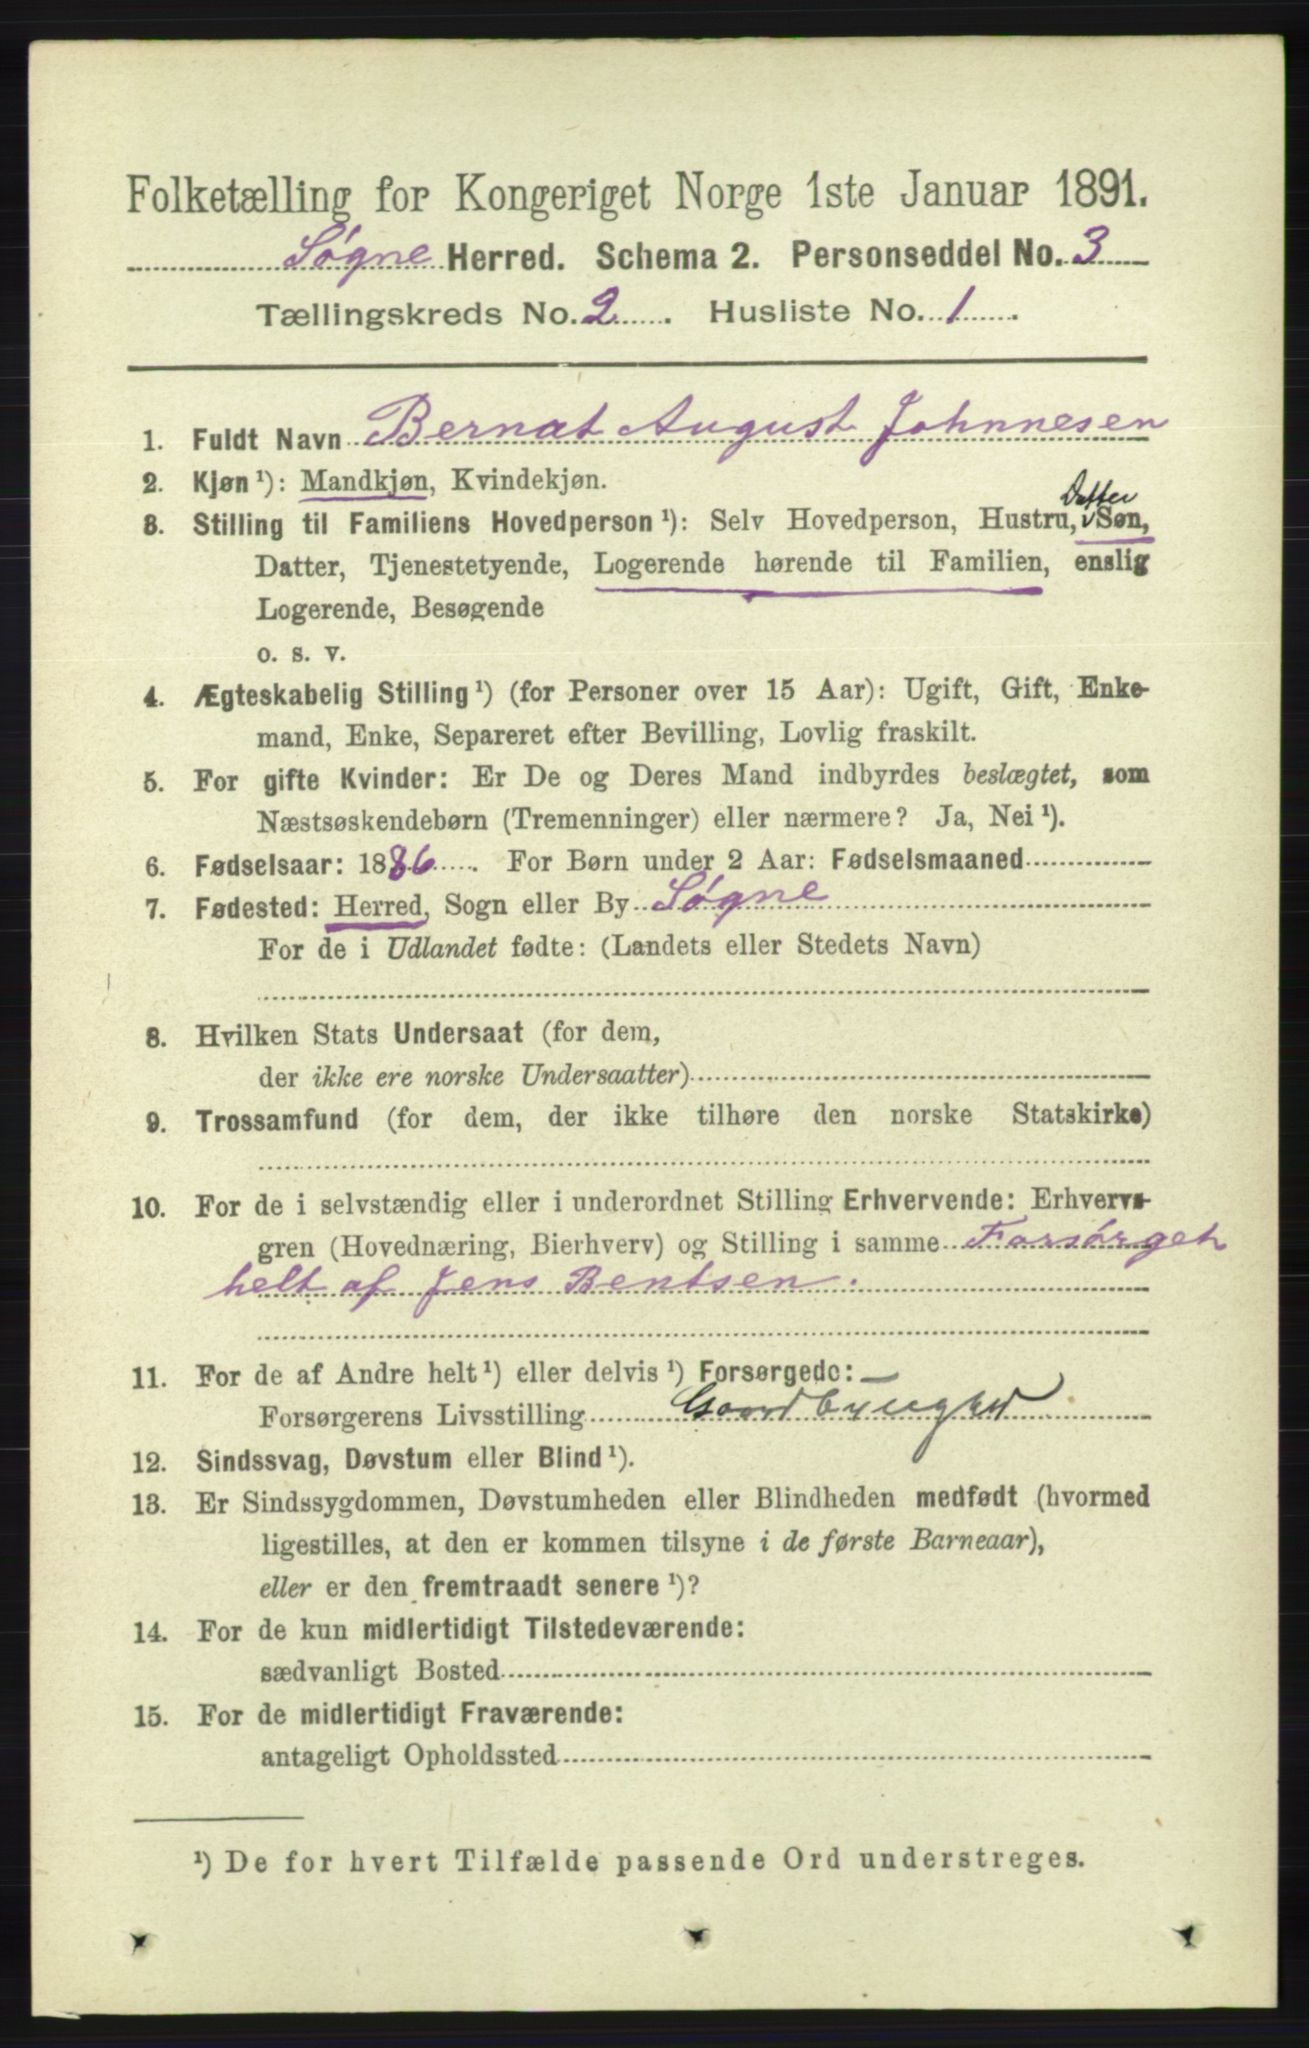 Folketælling for Kongeriget Norge 1ste Januar 1891.
Søgne Herred. Schema 2. Personseddel No. 3
Tællingskreds No. 2 . Husliste No. 1 .
1. Fuldt Navn Bernat August Johnnesen
2. Kjøn ¹): Mandkjøn, Kvindekjøn.
Datter
3. Stilling til Familiens Hovedperson ¹): Selv Hovedperson, Hustru, Søn,
Datter, Tjenestetyende, Logerende hørende til Familien, enslig
Logerende, Besøgende
o. s. v.
4. Ægteskabelig Stilling ¹) (for Personer over 15 Aar): Ugift, Gift, Enke-
mand, Enke, Separeret efter Bevilling, Lovlig fraskilt.
5. For gifte Kvinder: Er De og Deres Mand indbyrdes beslægtet, som
Næstsøskendebørn (Tremenninger) eller nærmere? Ja, Nei ¹).
6. Fødselsaar: 1886 . For Børn under 2 Aar: Fødselsmaaned
7. Fødested: Herred, Sogn eller By Søgne
For de i Udlandet fødte: (Landets eller Stedets Navn)
8. Hvilken Stats Undersaat (for dem,
der ikke ere norske Undersaatter)
9. Trossamfund (for dem, der ikke tilhøre den norske Statskirke)
10. For de i selvstændig eller i underordnet Stilling Erhvervende: Erhvervs-
gren (Hovednæring, Bierhverv) og Stilling i samme Forsørget
helt af Jens Bentsen.
11. For de af Andre helt ¹) eller delvis ¹) Forsørgede:
Forsørgerens Livsstilling
12. Sindssvag, Døvstum eller Blind ¹).
13. Er Sindssygdommen, Døvstumheden eller Blindheden medfødt (hvormed
ligestilles, at den er kommen tilsyne i de første Barneaar),
eller er den fremtraadt senere ¹)?
14. For de kun midlertidigt Tilstedeværende:
sædvanligt Bosted
15. For de midlertidigt Fraværende:
antageligt Opholdssted
¹) De for hvert Tilfælde passende Ord understreges.